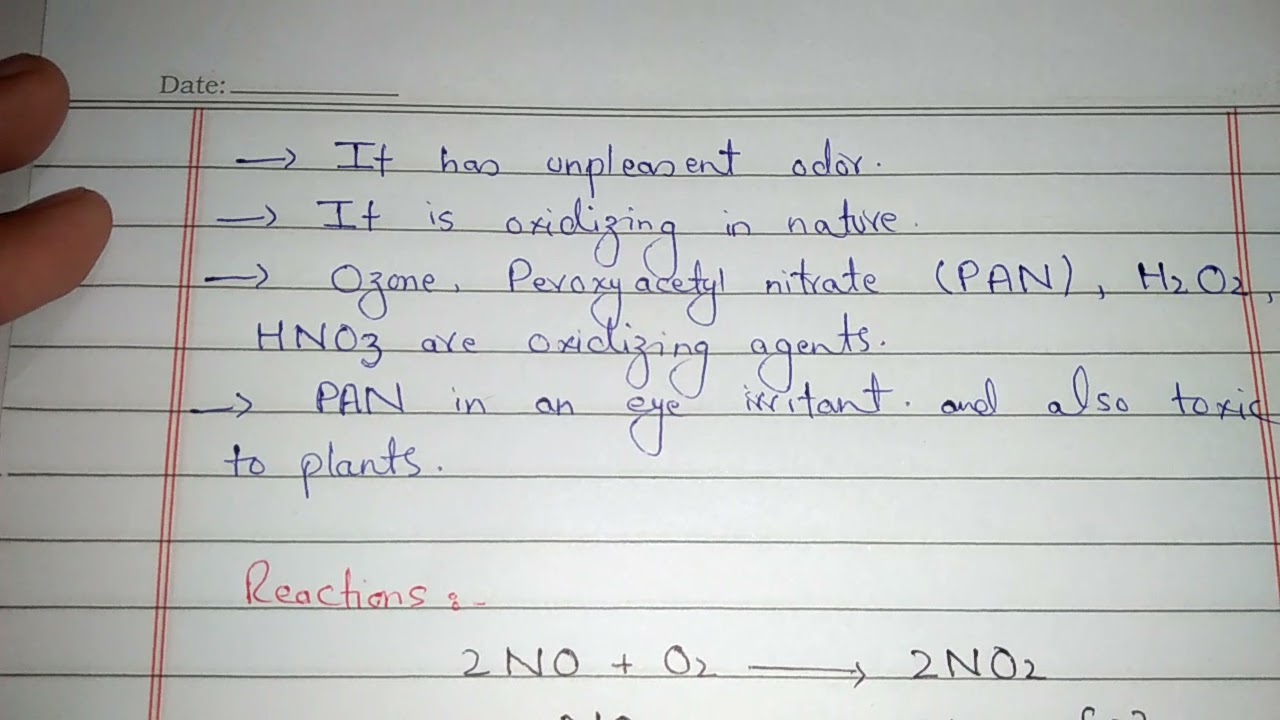 Date:
→ It has unpleasent odor.
→ It is oxidizing in nature.
→ Ozone, Peroxyacetyl nitrate (PAN), H2O2,
HNO3 are oxidizing agents.
→ PAN in an eye irritant. and also toxic
to plants.
Reactions :-
2NO + O2 → 2NO2